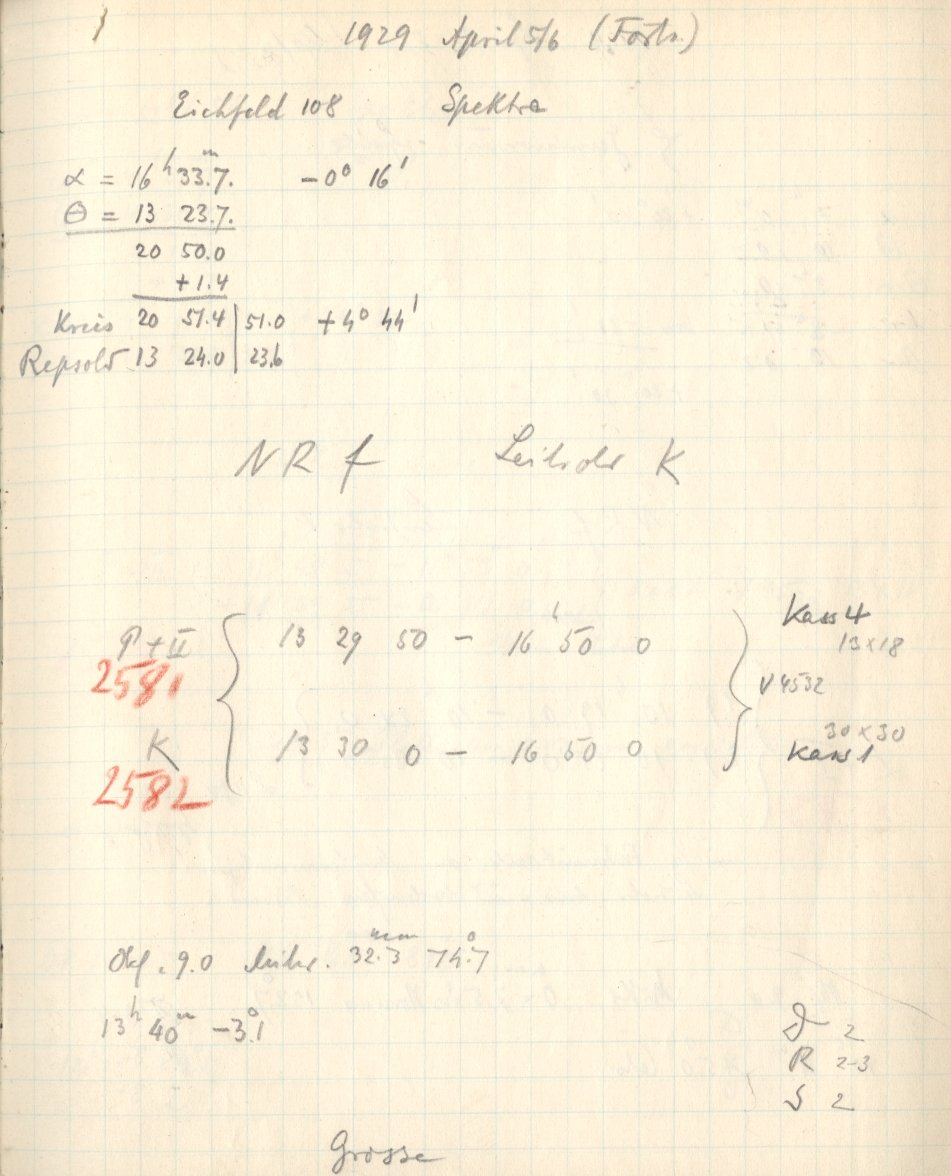 1929 April 5/6 (Forts.)
Eichfeld 108 Spektra
α = 16 h 33.7 m. -0° 16'
Θ = 13 23.7.
20 50.0
+1.4
Kreis 20 51.4 | 51.0 +4° 44'
Repsold 13 24.0 | 23.6
NR f Leitrohr K
P+II { 13 29 50 - 16 50 0 } Kass 4
13×18
2581
V 4532
30×30
K 13 30 0 - 16 50 0 Kass 1
2582
Okf. 9.0 Mikr. 32.3 mm 74.°7
13 h 40 m -3.°1
D 2
R 2-3
S 2
Grosse